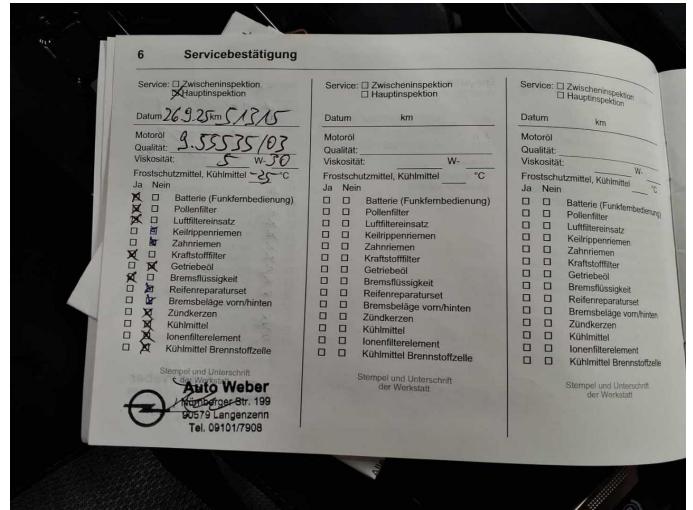 6 Servicebestätigung
Service: ☐ Zwischeninspektion
☒ Hauptinspektion
Datum 26.9.25 km 51315
Motoröl
Qualität: 9.55535/03
Viskosität: 5 W-30
Frostschutzmittel, Kühlmittel -25 °C
Ja Nein
☒ ☐ Batterie (Funkfernbedienung)
☒ ☐ Pollenfilter
☒ ☐ Luftfiltereinsatz
☐ ☒ Keilrippenriemen
☐ ☒ Zahnriemen
☒ ☐ Kraftstofffilter
☐ ☒ Getriebeöl
☒ ☐ Bremsflüssigkeit
☐ ☒ Reifenreparaturset
☐ ☒ Bremsbeläge vorn/hinten
☐ ☒ Zündkerzen
☐ ☒ Kühlmittel
☐ ☒ Ionenfilterelement
☐ ☒ Kühlmittel Brennstoffzelle
Stempel und Unterschrift
der Werkstatt
Auto Weber
Nürnberger Str. 199
90579 Langenzenn
Tel. 09101/7908
Service: ☐ Zwischeninspektion
☐ Hauptinspektion
Datum km
Motoröl
Qualität:
Viskosität: W-
Frostschutzmittel, Kühlmittel °C
Ja Nein
☐ ☐ Batterie (Funkfernbedienung)
☐ ☐ Pollenfilter
☐ ☐ Luftfiltereinsatz
☐ ☐ Keilrippenriemen
☐ ☐ Zahnriemen
☐ ☐ Kraftstofffilter
☐ ☐ Getriebeöl
☐ ☐ Bremsflüssigkeit
☐ ☐ Reifenreparaturset
☐ ☐ Bremsbeläge vorn/hinten
☐ ☐ Zündkerzen
☐ ☐ Kühlmittel
☐ ☐ Ionenfilterelement
☐ ☐ Kühlmittel Brennstoffzelle
Stempel und Unterschrift
der Werkstatt
Service: ☐ Zwischeninspektion
☐ Hauptinspektion
Datum km
Motoröl
Qualität:
Viskosität: W-
Frostschutzmittel, Kühlmittel °C
Ja Nein
☐ ☐ Batterie (Funkfernbedienung)
☐ ☐ Pollenfilter
☐ ☐ Luftfiltereinsatz
☐ ☐ Keilrippenriemen
☐ ☐ Zahnriemen
☐ ☐ Kraftstofffilter
☐ ☐ Getriebeöl
☐ ☐ Bremsflüssigkeit
☐ ☐ Reifenreparaturset
☐ ☐ Bremsbeläge vorn/hinten
☐ ☐ Zündkerzen
☐ ☐ Kühlmittel
☐ ☐ Ionenfilterelement
☐ ☐ Kühlmittel Brennstoffzelle
Stempel und Unterschrift
der Werkstatt